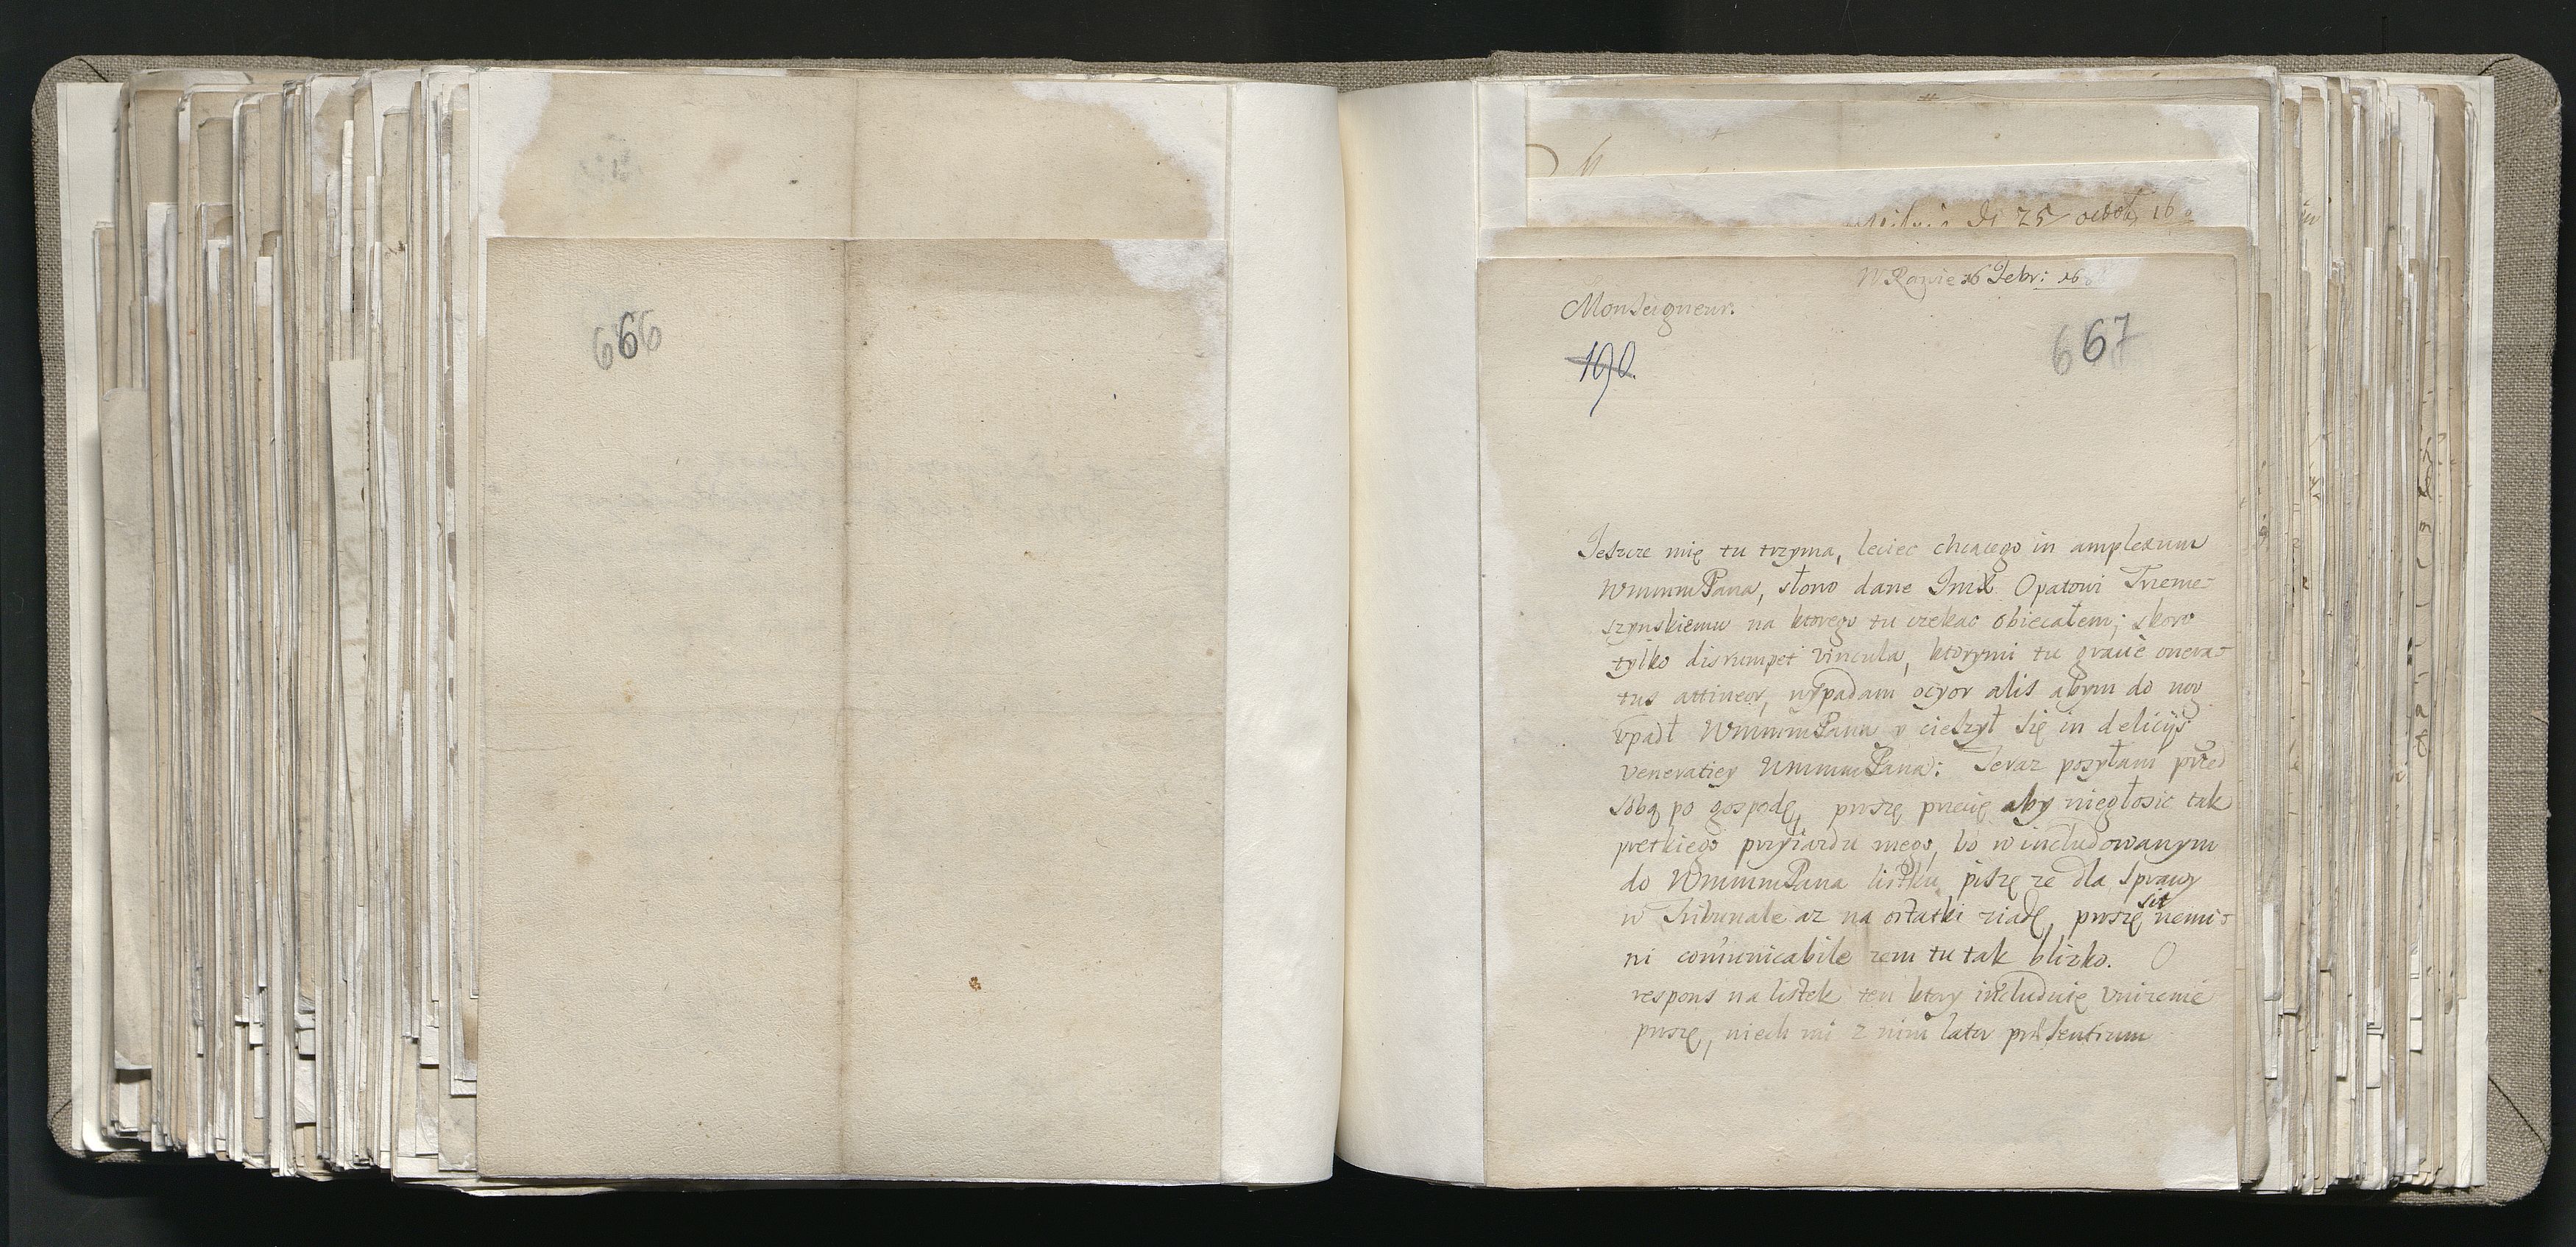 666
25 octob 16
W Rawie 16 Febr: 168
Monseigneur.
190.
667
Jeszcze mię tu trzyma, leciec chcącego in amplexum
WmmmPana, słowo dane ImX Opatowi Trzeme-
szynskiemu na ktorego tu czekac obiecałem; skoro
tylko disrumpet vincula, ktorymi tu graue onera-
tus attineor, wypadam ocyor alis abym do nog
vpadł WmmmPanu y cieszył się in delicijs
veneratiey WmmmPana: Teraz posyłam przed
sobą po gospodę, proszę przecię aby niegłosic tak
prętkiego przyiazdu mego, bo w includowanym
do WmmmPana listku piszę ze dla sprawy
w Tribunale az na ostatki ziadę, proszę sit nemi-
ni com̃unicabile zem tu tak blizko. O
respons na listek ten ktory includuię vnizenie
proszę, niech mi z nim lator præsentium